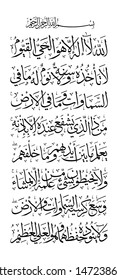 بسم الله الرحمن الرحيم
الله لا إله إلا هو الحي القيوم
لا تأخذه سنة ولا نوم له ما في
السماوات وما في الأرض
من ذا الذي يشفع عنده إلا بإذنه
يعلم ما بين أيديهم وما خلفهم
ولا يحيطون بشيء من علمه إلا بما شاء
وسع كرسيه السماوات والأرض
ولا يؤوده حفظهما وهو العلي العظيم